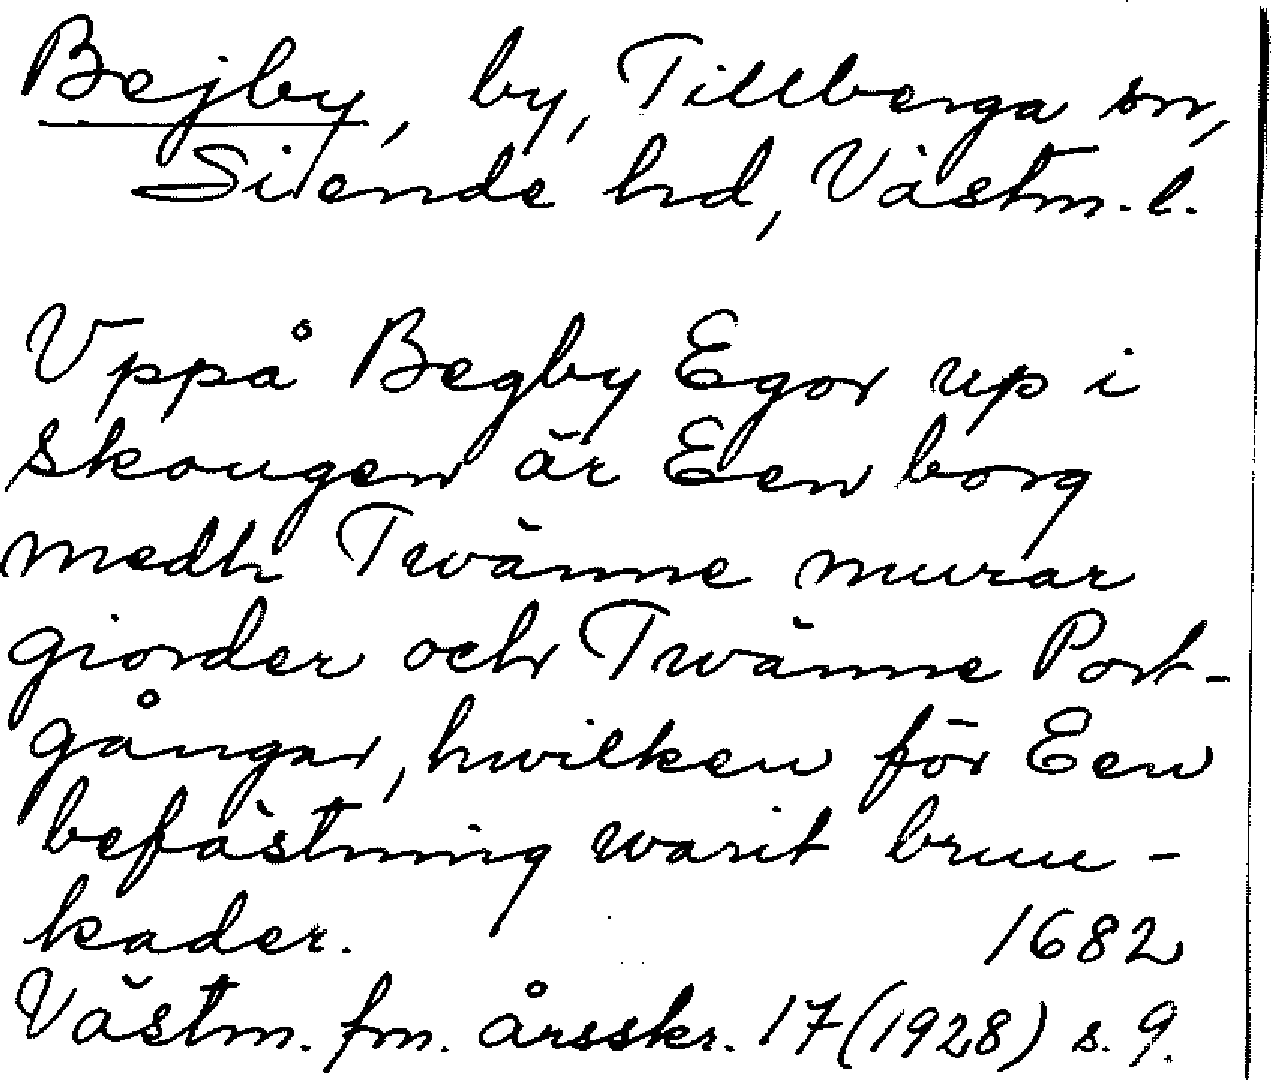 Bejby, by, Tillberga sn,
Siende hd, Västm. l.
Vppå Begby Egor up i
skougen är Een borg
medh Twänne murar
giorder och Twänne Port-
gångar, hwilken för Een
befästning warit bruu-
kader. 1682
Västm. fm. årsskr. 17 (1928) s. 9.